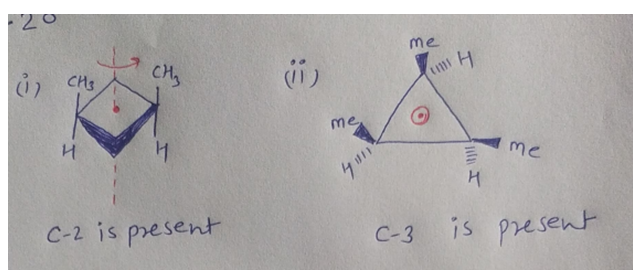 -20
(i) CH3 CH3
H H
C-2 is present
(ii) me H
me H
me H
C-3 is present